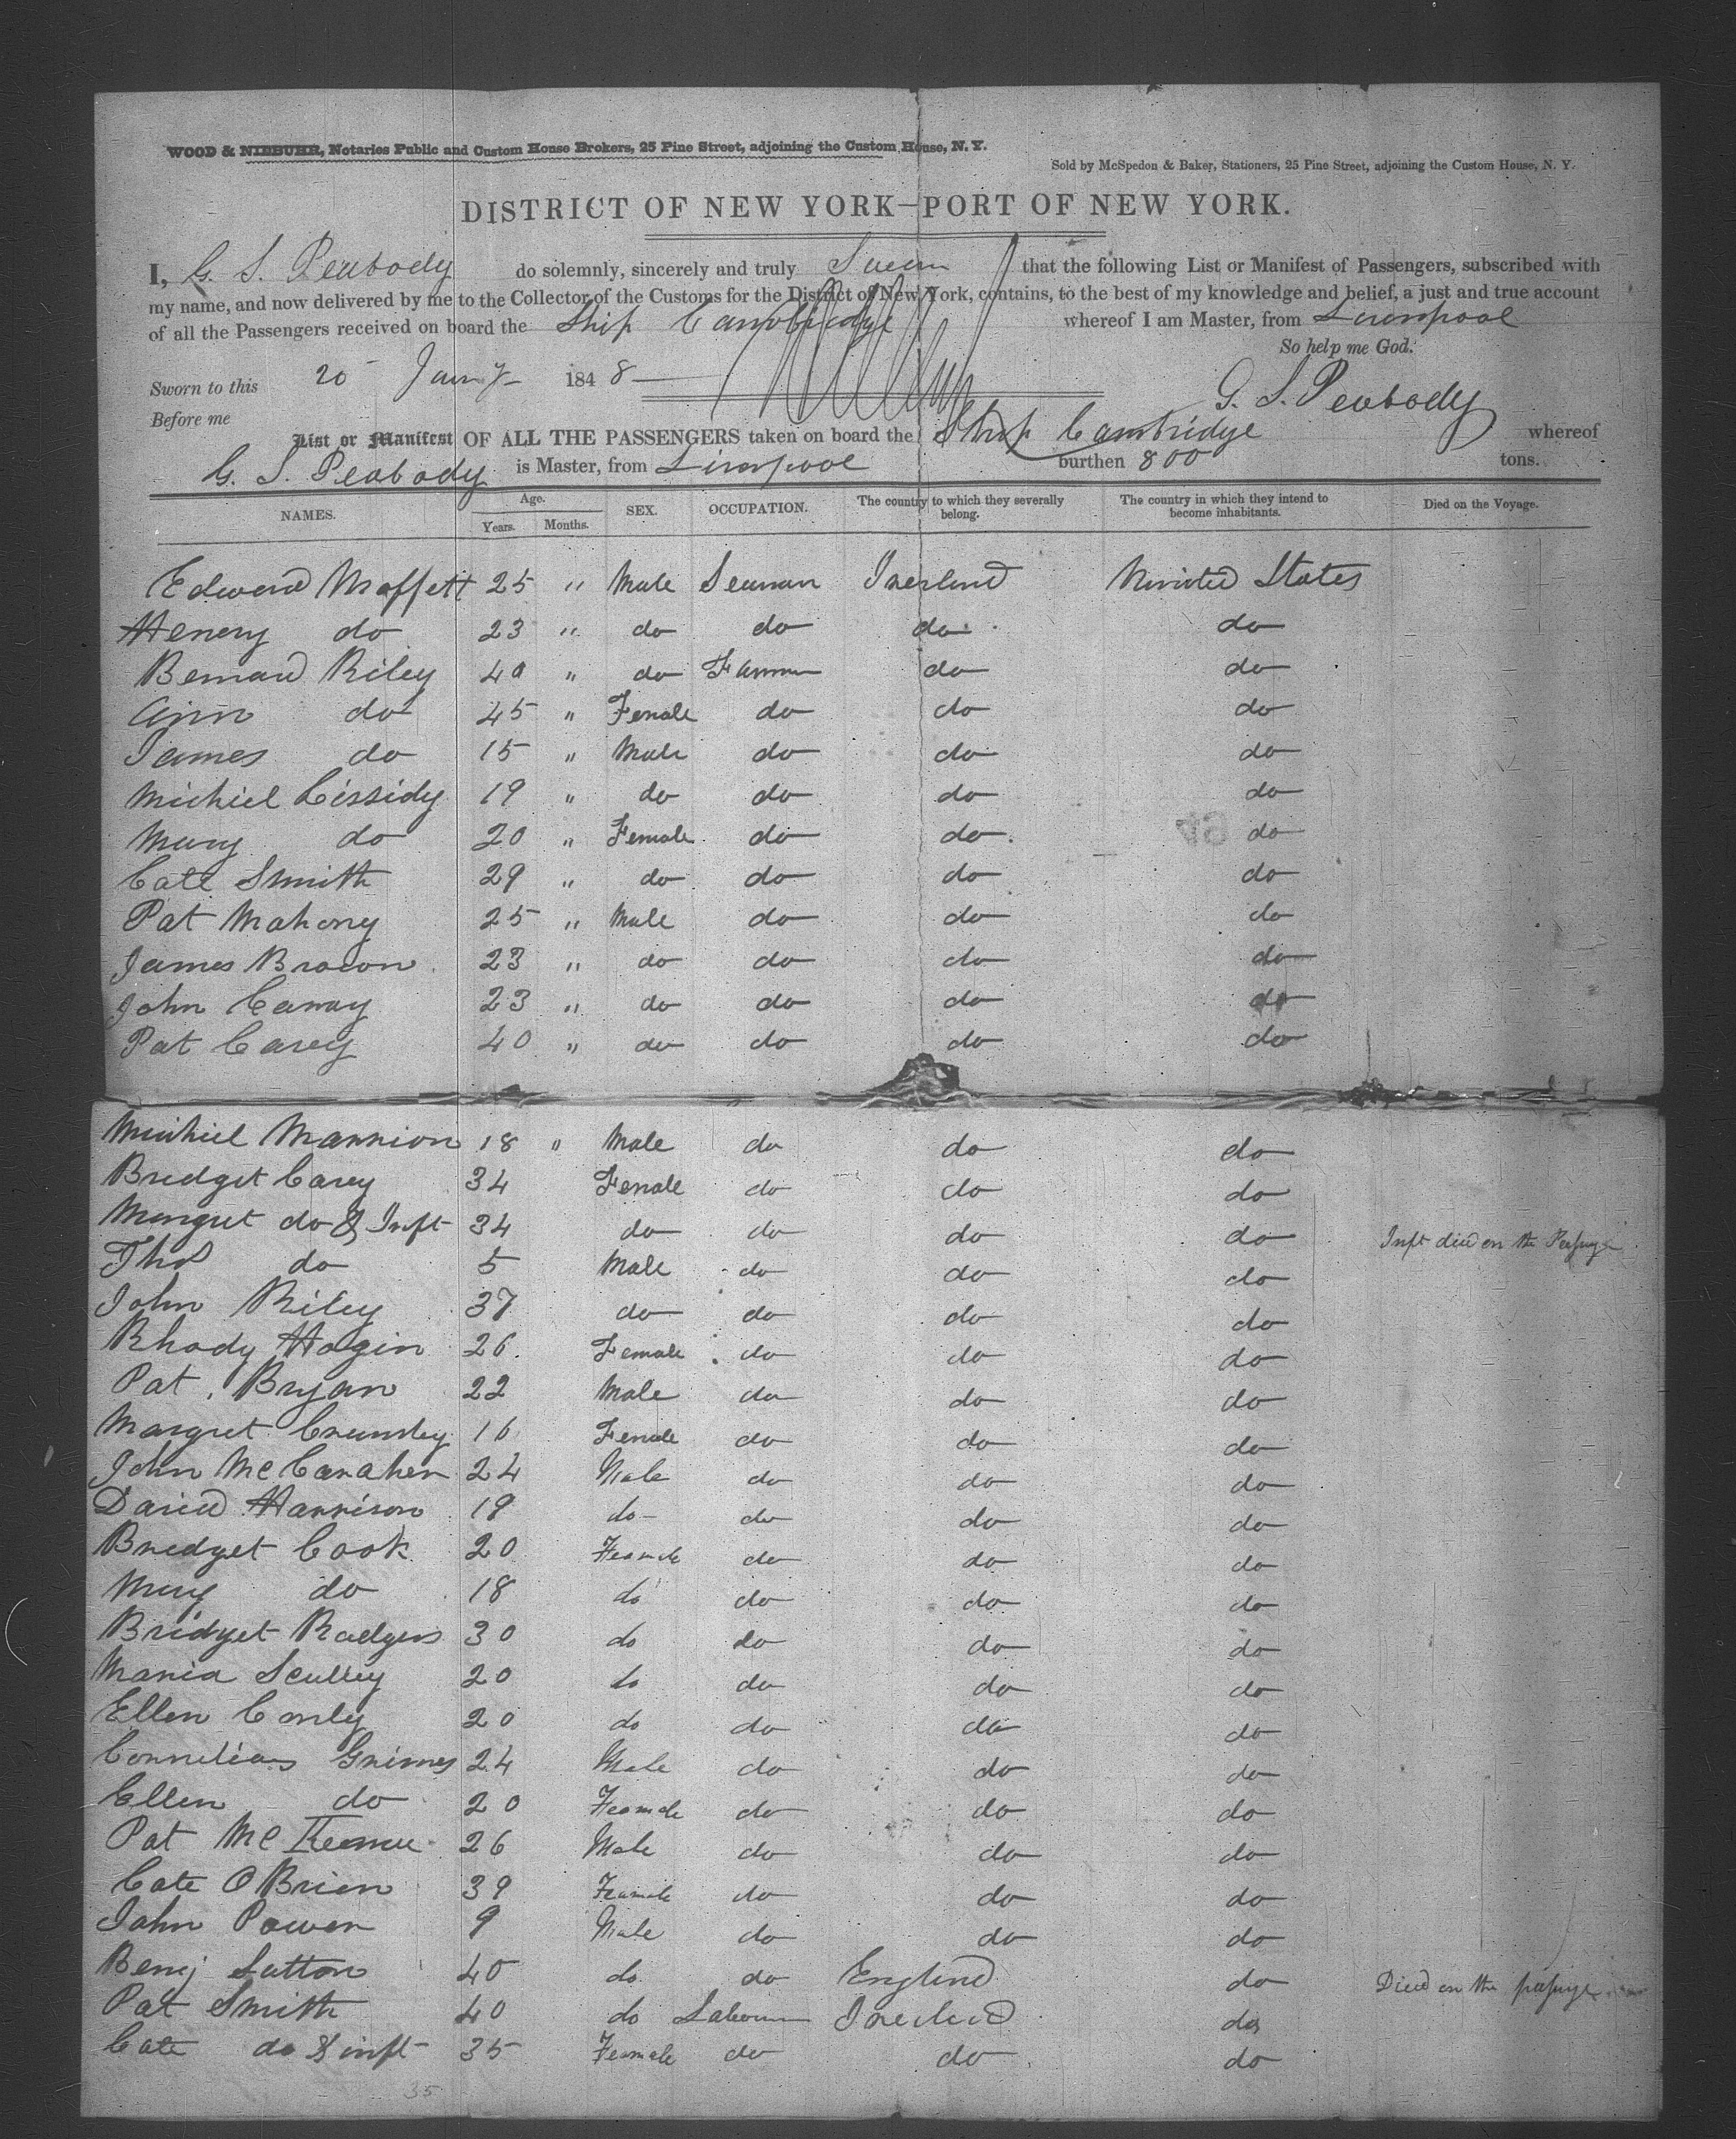 WOOD & NIEBUHR, Notaries Public and Custom House Brokers, 25 Pine Street, adjoining the Custom House, N. Y.
Sold by McSpedon & Baker, Stationers, 25 Pine Street, adjoining the Custom House, N. Y.
DISTRICT OF NEW YORK—PORT OF NEW YORK.
I, G. S. Peabody do solemnly, sincerely and truly that the following List or Manifest of Passengers, subscribed with
my name, and now delivered by me to the Collector of the Customs for the District of New York, contains, to the best of my knowledge and belief, a just and true account
of all the Passengers received on board the Ship Cambridge whereof I am Master, from Liverpool
So help me God.
Sworn to this 20 Jany 1848
G. S. Peabody
Before me
List or Manifest OF ALL THE PASSENGERS taken on board the Ship Cambridge whereof
G. S. Peabody is Master, from Liverpool burthen 800 tons.
NAMES. Age. Years. Months. SEX. OCCUPATION. The country to which they severally belong. The country in which they intend to become inhabitants. Died on the Voyage.
Edward Moffett 25 " Male Seaman Ireland United States
Henery do 23 " do do do do
Bernard Riley 40 " do Farmer do do
Ann do 45 " Female do do do
James do 15 " Male do do do
Michiel Cissidy 19 " do do do do
Mary do 20 " Female do do do
Cate Smith 29 " do do do do
Pat Mahony 25 " Male do do do
James Brown 23 " do do do do
John 23 " do do do do
Pat Carey 40 " do do do do
Michiel Mannion 18 " Male do do do
Bridget Carey 34 Female do do do
Margret do & Inft 34 do do do do Inft died on the Passage
Thos do 5 Male do do do
John Riley 37 do do do do
Rhody Hogin 26 Female do do do
Pat Bryan 22 Male do do do
Margret 16 Female do do do
John 24 Male do do do
David Harrison 19 do do do do
Bridget Cook 20 Feamale do do do
Mary do 18 do do do do
Bridget Rodgers 30 do do do do
Maria Sculley 20 do do do do
Ellen Conly 20 do do do do
Cornelius Grimes 24 Male do do do
Ellen do 20 Feamale do do do
Pat 26 Male do do do
Cate OBrien 39 Feamale do do do
John Power 9 Male do do do
Benj Sutton 40 do do England do Died on the passage
Pat Smith 40 do Labourer Ireland do
Cate do & inft 35 Feamale do do do
35